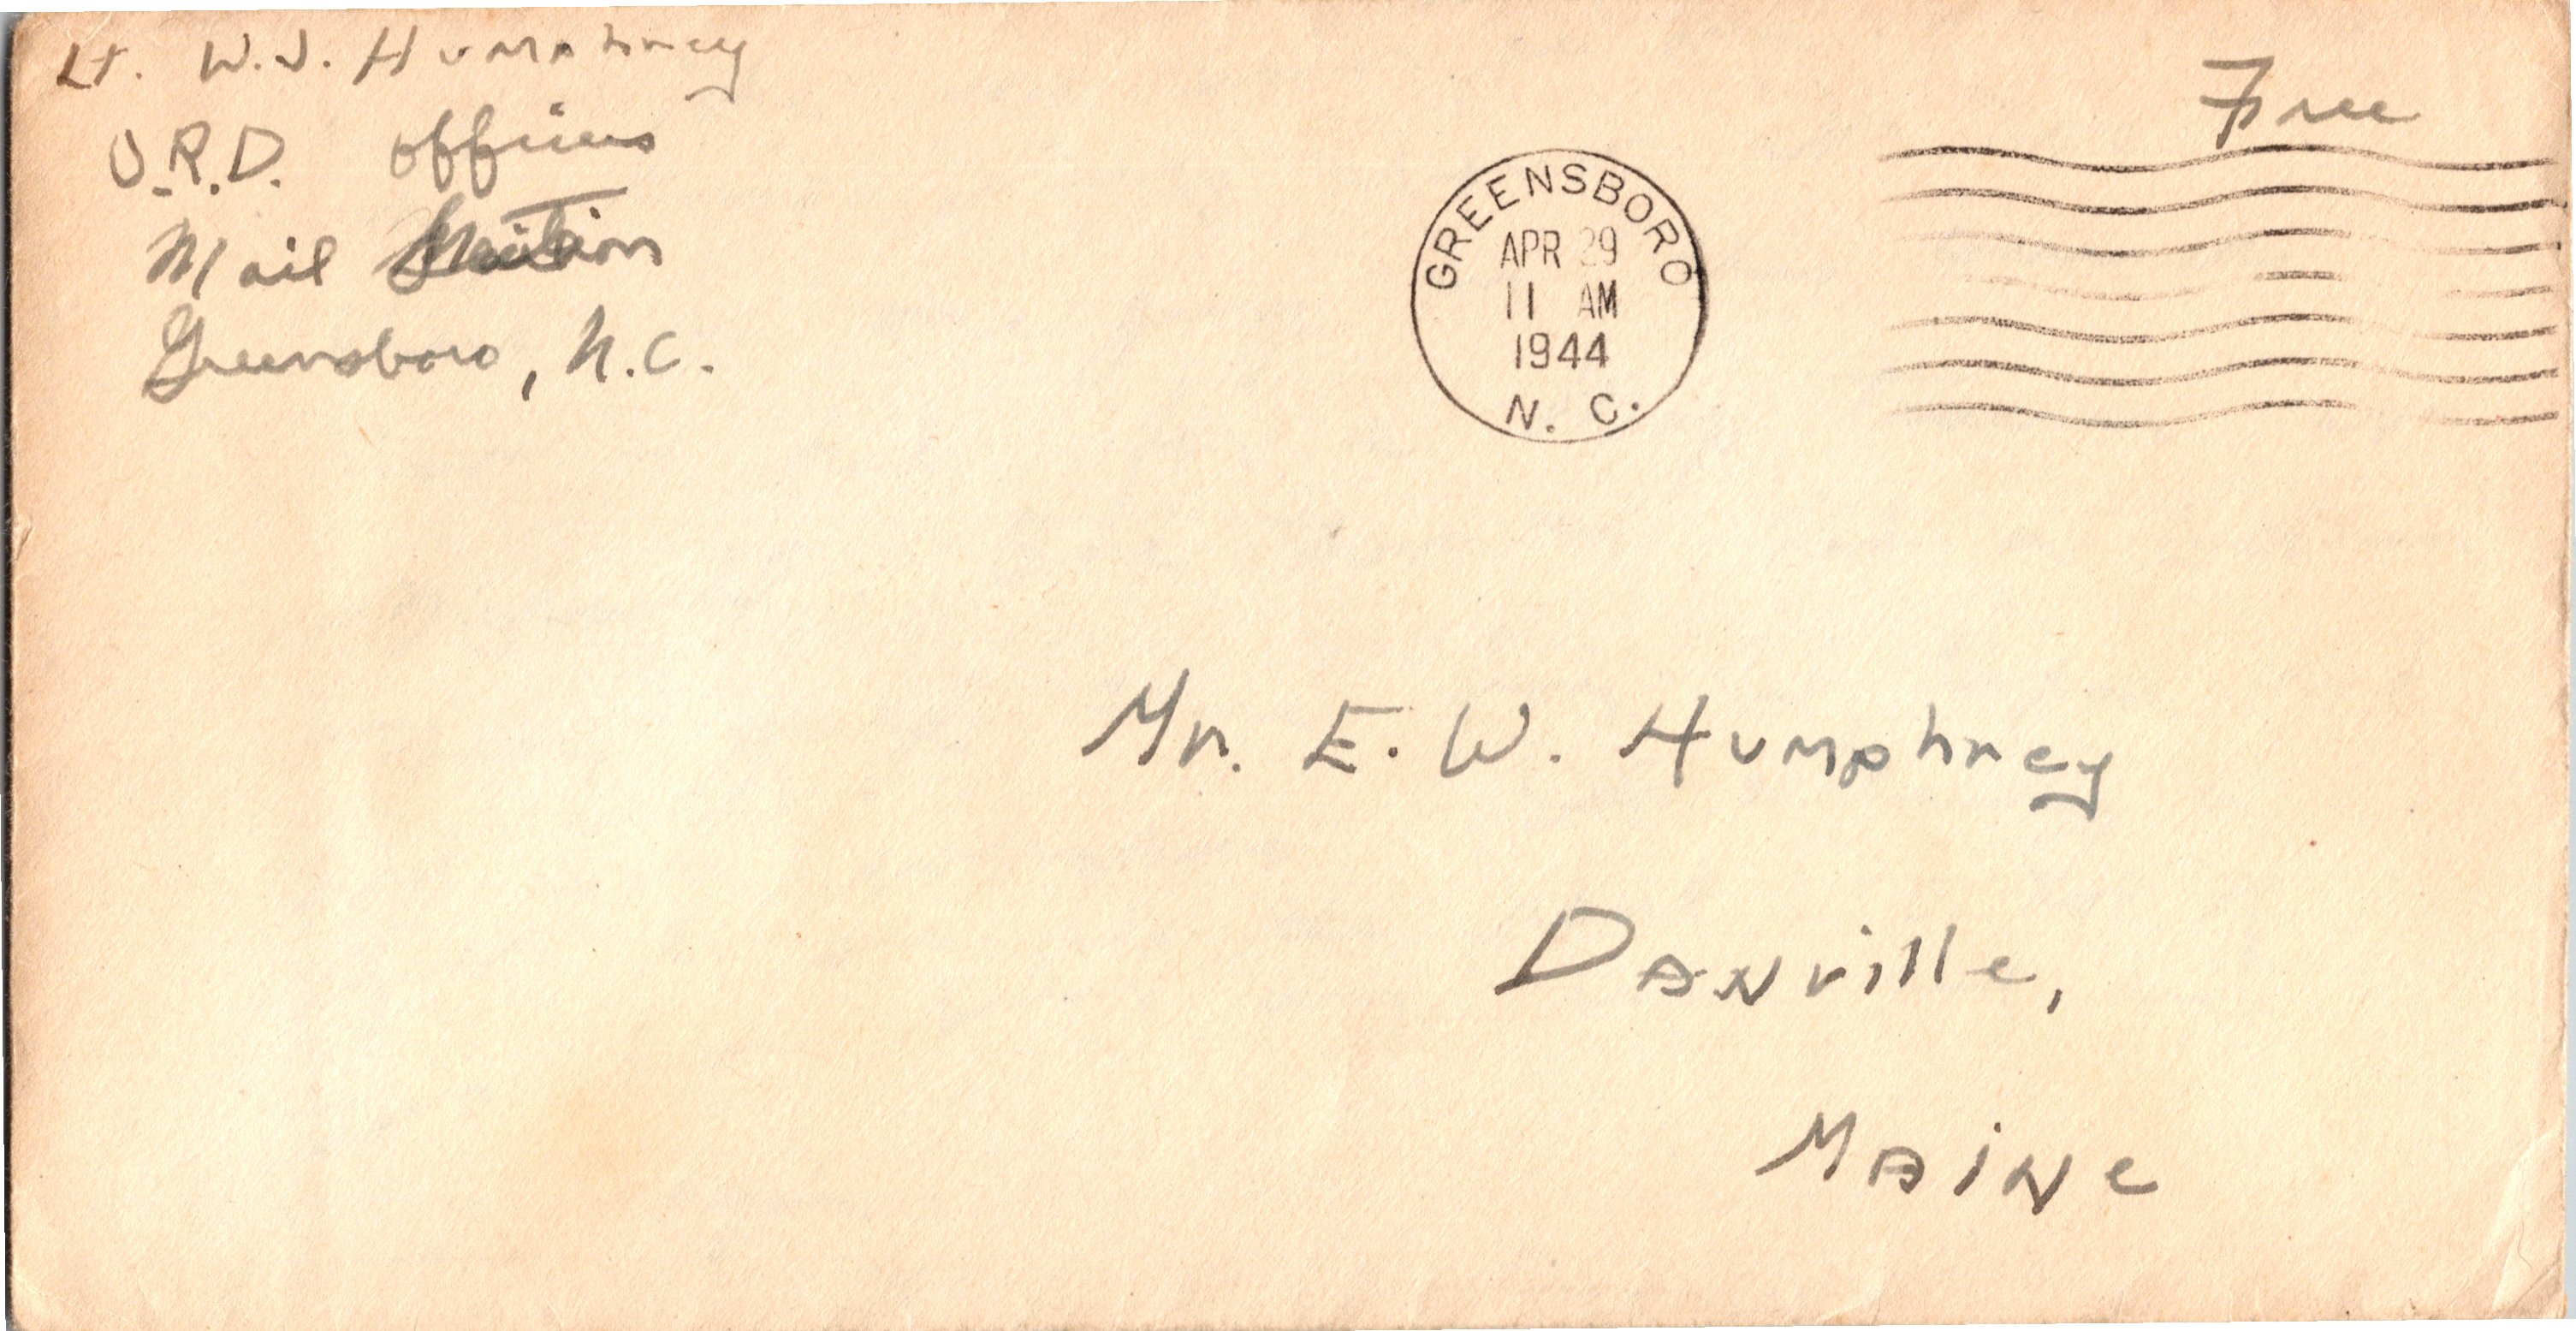 Lt. W.J. Humphrey
O.R.D. Officers
Mail Section
Greensboro, N.C.
Free
GREENSBORO
APR 29
11 AM
1944
N. C.
Mr. E. W. Humphrey
Danville,
Maine